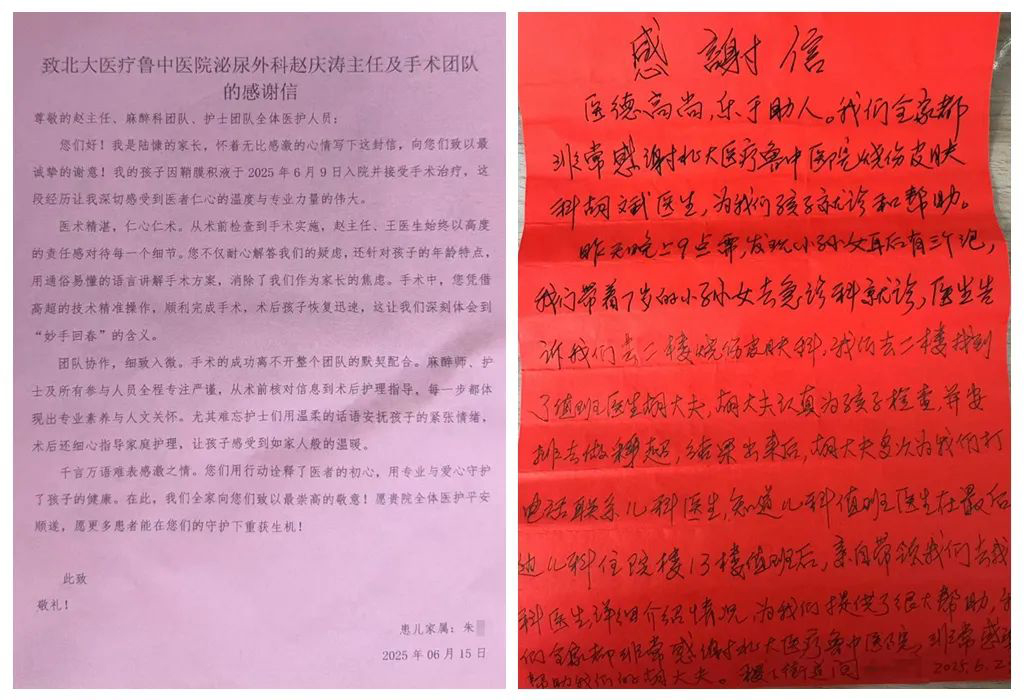 致北大医疗鲁中医院泌尿外科赵庆涛主任及手术团队
的感谢信
尊敬的赵主任、麻醉科团队、护士团队全体医护人员：
您们好！我是陆慷的家长，怀着无比感激的心情写下这封信，向您们致以最
诚挚的谢意！我的孩子因鞘膜积液于 2025 年 6 月 9 日入院并接受手术治疗，这
段经历让我深切感受到医者仁心的温度与专业力量的伟大。
医术精湛，仁心仁术。从术前检查到手术实施，赵主任、王医生始终以高度
的责任感对待每一个细节。您不仅耐心解答我们的疑虑，还针对孩子的年龄特点，
用通俗易懂的语言讲解手术方案，消除了我们作为家长的焦虑。手术中，您凭借
高超的技术精准操作，顺利完成手术，术后孩子恢复迅速，这让我们深刻体会到
“妙手回春”的含义。
团队协作，细致入微。手术的成功离不开整个团队的默契配合。麻醉师、护
士及所有参与人员全程专注严谨，从术前核对信息到术后护理指导，每一步都体
现出专业素养与人文关怀。尤其难忘护士们用温柔的话语安抚孩子的紧张情绪，
术后还细心指导家庭护理，让孩子感受到如家人般的温暖。
千言万语难表感激之情。您们用行动诠释了医者的初心，用专业与爱心守护
了孩子的健康。在此，我们全家向您们致以最崇高的敬意！愿贵院全体医护平安
顺遂，愿更多患者能在您们的守护下重获生机！
此致
敬礼！
患儿家属：朱
2025 年 06 月 15 日
感謝信
医德高尚，乐于助人。我们全家都
非常感谢北大医疗鲁中医院烧伤皮肤
科胡斌医生，为我们孩子就诊和帮助。
昨天晚上9点需，发现小孙女耳后有三个泡，
我们带着7岁的小孙女去急诊科就诊，医生告
诉我们去二楼烧伤皮肤科，我们去二楼找到
了值班医生胡大夫，胡大夫认真为孩子检查，并安
排去做彩超，结果出来后，胡大夫多次为我们打
电话联系儿科医生，知道儿科值班医生在最后
边儿科住院楼13楼值班后，亲自带领我们去找
科医生详细介绍情况，为我们提供了很大帮助，
们全家都非常感谢北大医疗鲁中医院，非常感谢
帮助我们的胡大夫。
2025.6.2